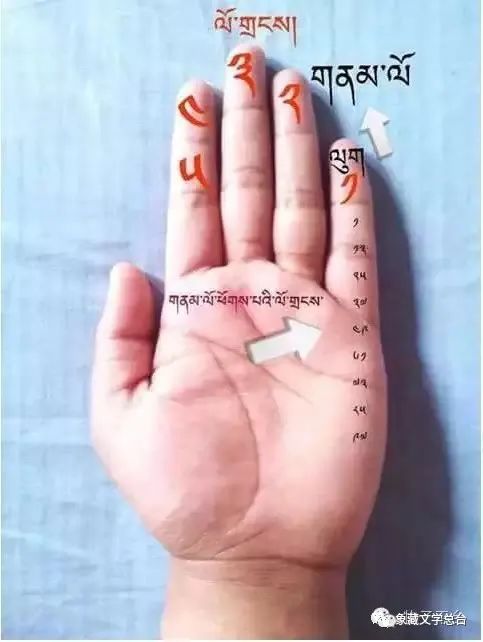 ལོ་གྲངས།
༣
༢
གནམ་ལོ
༤
༥
ལུག
༡
༡
༡༣
༢༥
༣༧
གནམ་ལོ་ཕོགས་པའི་ལོ་གྲངས་
༤༩
༦༡
༧༣
༨༥
༩༧
象藏文学总台